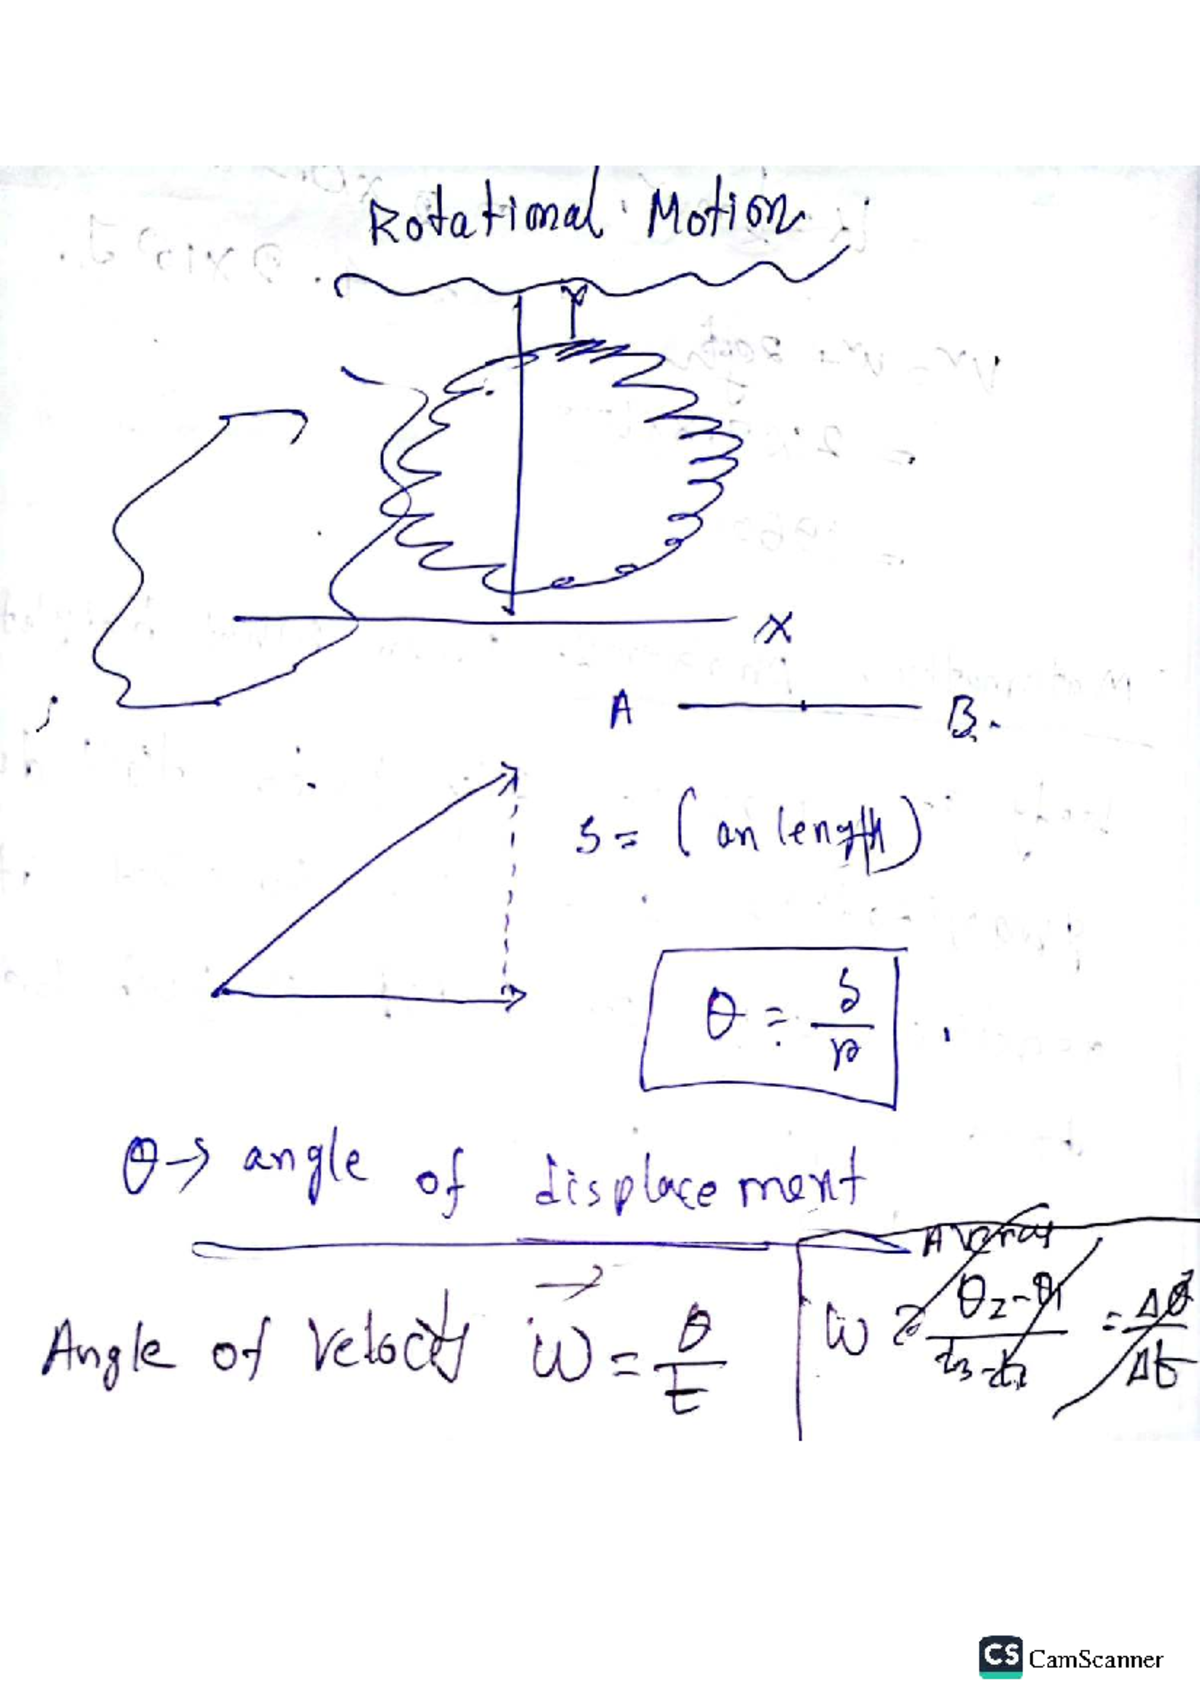 Rotational Motion
Y
X
A B.
S = (an length)
θ = S/r
θ → angle of displacement
Angle of Velocity ω⃗ = θ/t
Averag
ω = θ₂-θ₁ / = Δθ/Δt
CS CamScanner